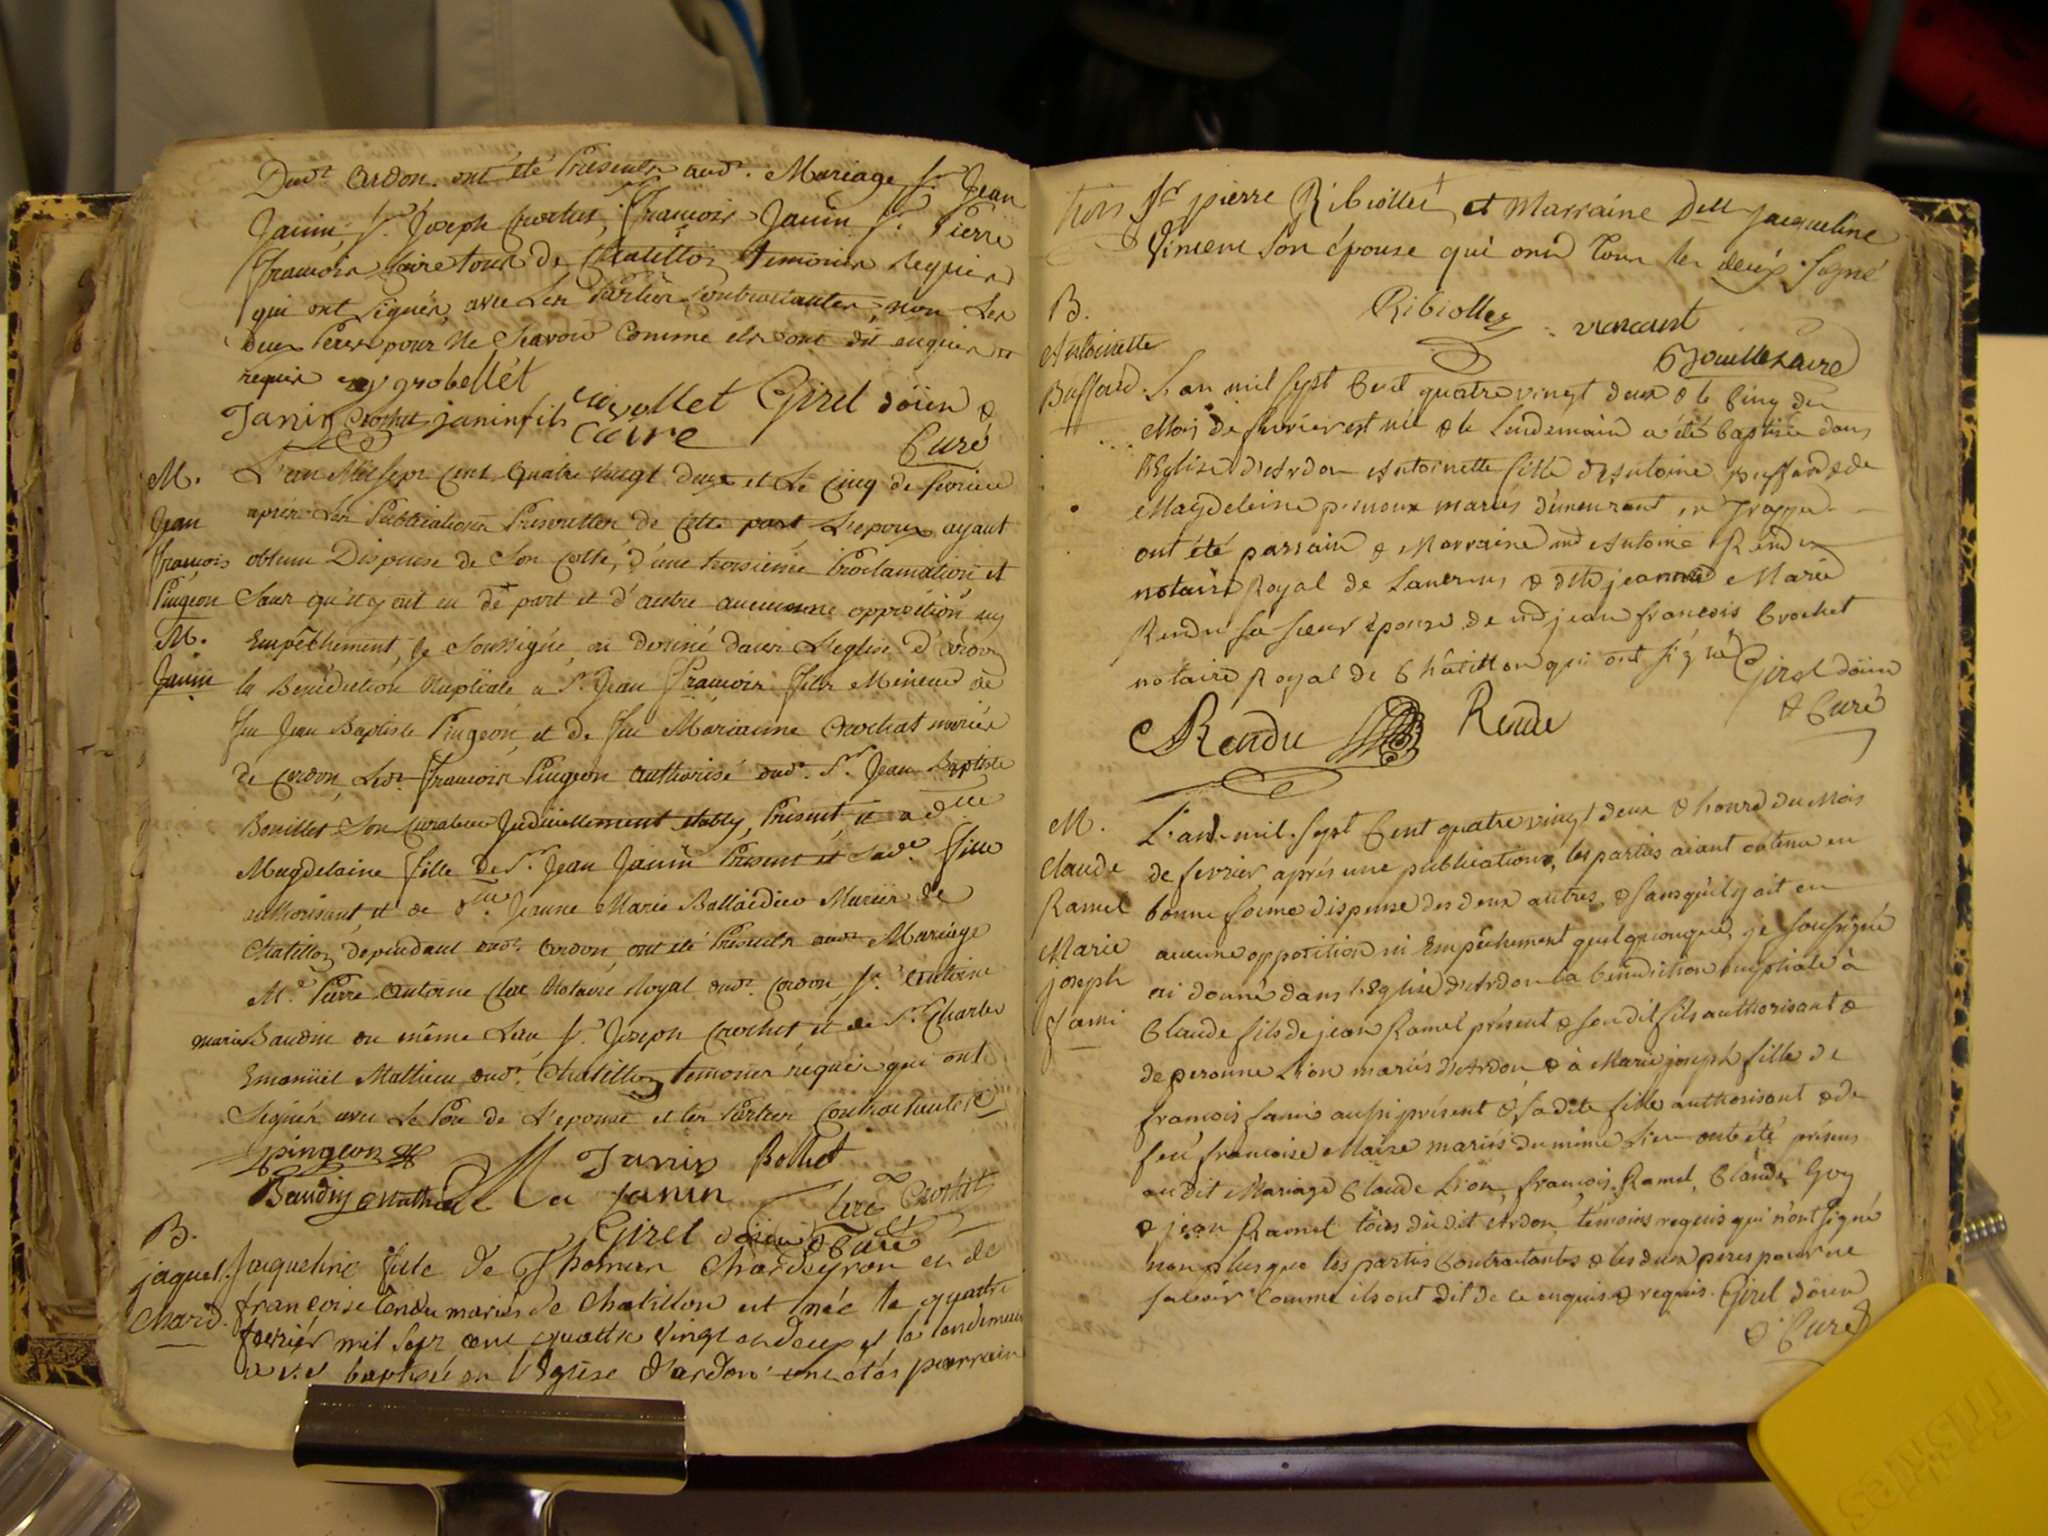 Dud.t Ardon. ont été Présents aud.t Mariage S.r Jean
Janin, S.r Joseph Crochet, François Janin S.r Pierre
François Caire tous de Chatillon temoins requis
qui ont signés avec Les Parties Contractantes, non Les
deux Peres pour Ne Scavoir Comme ils ont dit enquis et
requis grobellét
Janin Crochet janin fils Caire Girel doïen &
Curé
M.
Jean
François
Pingeon
M.
Janin
L'an Mil sept Cent quatre vingt deux et Le Cinq de fevrier
après Les Publications Presentes de Cette part L'epoux ayant
obtenu Dispense de Son Cotté, d'une troisieme Proclamation et
Sans qu'il y ait eu de part et d'autre aucunne opposition ny
Empechement, Je Soussigné ai donné dans L'eglise d'Ardon
la Benediction Nuptiale a S.r Jean François fils Mineur de
feu Jean Baptiste Pingeon et de feu Marianne Crochat mariés
de Cordon, Led.t François Pingeon authorisé dud.t S.r Jean Baptiste
Bouillet Son Curateur Judiciellement etably, Present, et a d.lle
Magdelaine fille de S.r Jean Janin Present et Sad.e fille
authorisant, et de d.lle Jeanne Marie Ballaidier Mariés de
Chatillon dependant dud.t Ardon, ont été Presents aud.t Mariage
M.e Pierre Antoine Clerc Notaire Royal dud.t Cordon S.r Antoine
marie Baudin du même Lieu S.r Joseph Crochet, et de S.r Charles
Emanüel Mathieu dud.t Chatillon temoins requis qui ont
Signés avec Le Pere de L'epouse et les Parties Contractantes
pingeon M Janin Bolliet
Baudin Mathieu Ma janin Clerc Crochet
Girel doïen & Curé
B.
jaquel.
Chard.
Jacqueline fille de Thomas Chardeyron et de
françoise tendu mariés de Chatillon est née le quatre
fevrier mil sept cent quatre vingt et deux et le lendemain
a été baptisée en l'Eglise d'ardon ont étés parrain
S.r pierre Ribiollet et Marraine Delle Jacqueline
Vincent Son épouse qui ont tous les deux signé
Ribiollet vincent
B.
Antoinette
Buffard
L'an mil sept Cent quatre vingt deux & le Cinq du
Mois de fevrier est née & le Lendemain a été baptisée dans
l'Eglise d'Ardon Antoinette fille d'Antoine Buffard & de
Magdeleine pernoux mariés d'meurant en
ont été parrain & Marraine md Antoine Rendu
notaire Royal de Lancrans & dlle jeanne Marie
Rendu sa soeur épouse de md jean françois Crochet
notaire Royal de Châtillon qui ont signé Girel doïen
& Curé
Rendu Rendu
M.
Claude
Ramel
Marie
joseph
fami
L'an mil sept Cent quatre vingt deux & l'onze du Mois
de fevrier après une publication, les parties aiant obtenu en
bonne forme dispense des deux autres, & sans qu'il y ait eu
aucune opposition ni Empêchement quelqconque, je soussigné
ai donné dans l'Eglise d'Ardon la bénédiction nuptiale à
Claude fils de jean Ramel présent & son dit fils authorisant &
de peronne Lion mariés d'Ardon & à Marie joseph fille de
françois fami aussi présent & sa dite fille authorisant & de
feu françoise Maire mariés du même Lieu ont été présens
au dit Mariage Claude Lion, françois Ramel, Claude Goy
& jean Ramel tous du dit Ardon, témoins requis qui n'ont signé
non plus que les parties Contractantes & les deux peres pour ne
savoir Comme ils ont dit de ce enquis & requis. Girel doïen
& Curé